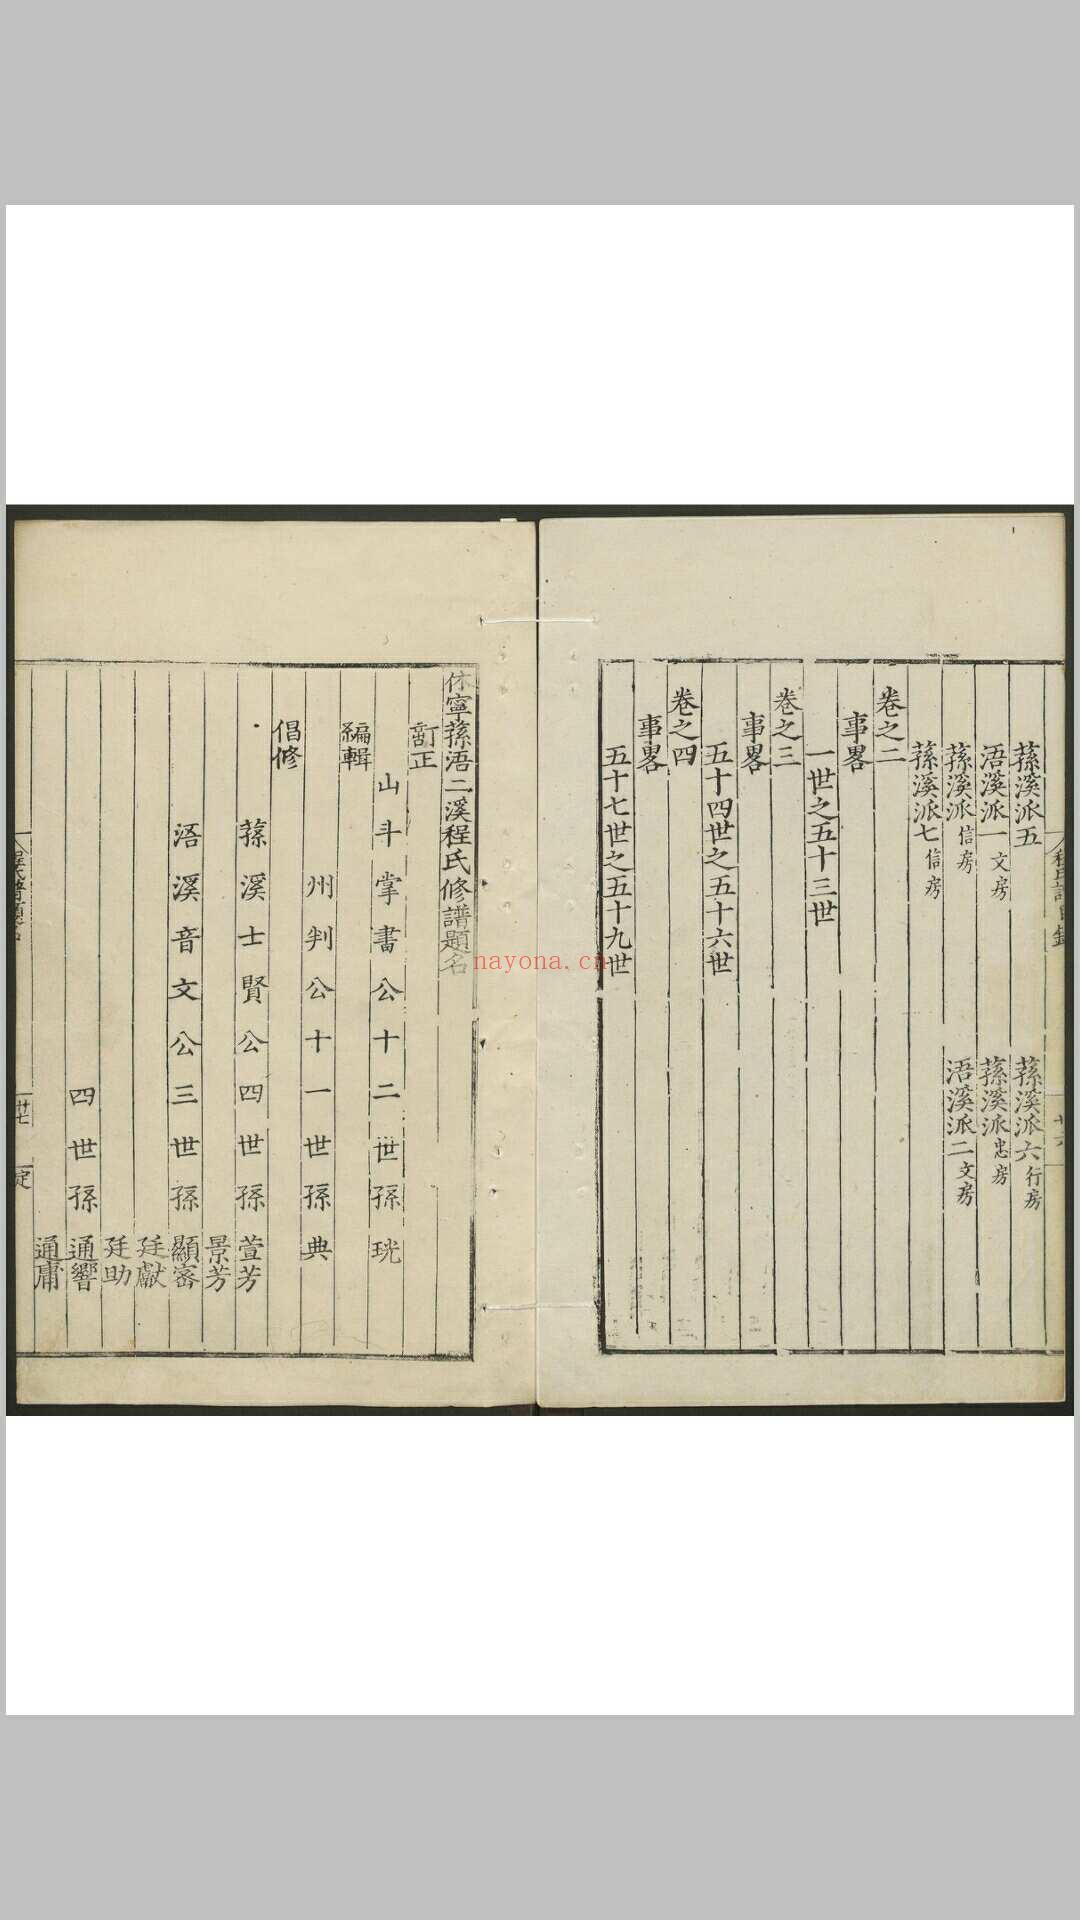 程氏譜目錄
廿六
蓀溪派五
蓀溪派六行房
浯溪派一文房
蓀溪派忠房
蓀溪派信房
浯溪派二文房
蓀溪派七信房
卷之二
事畧
一世之五十三世
卷之三
事畧
五十四世之五十六世
卷之四
事畧
五十七世之五十九世
休寧蓀浯二溪程氏修譜題名
訂正
山斗掌書公十二世孫珖
編輯
州判公十一世孫典
倡修
蓀溪士賢公四世孫萱芳
景芳
浯溪音文公三世孫顯審
廷獻
廷助
四世孫通響
通庸
程氏譜題名
廿七
定
nayona.cn